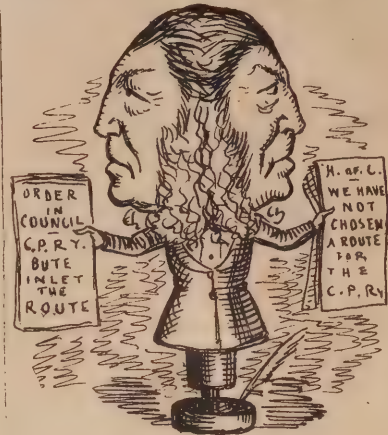 ORDER
IN
COUNCIL
C.P.RY.
BUTE
INLET
THE
ROUTE
H. OF. C.
WE HAVE
NOT
CHOSEN
A ROUTE
FOR
THE
C.P.RY